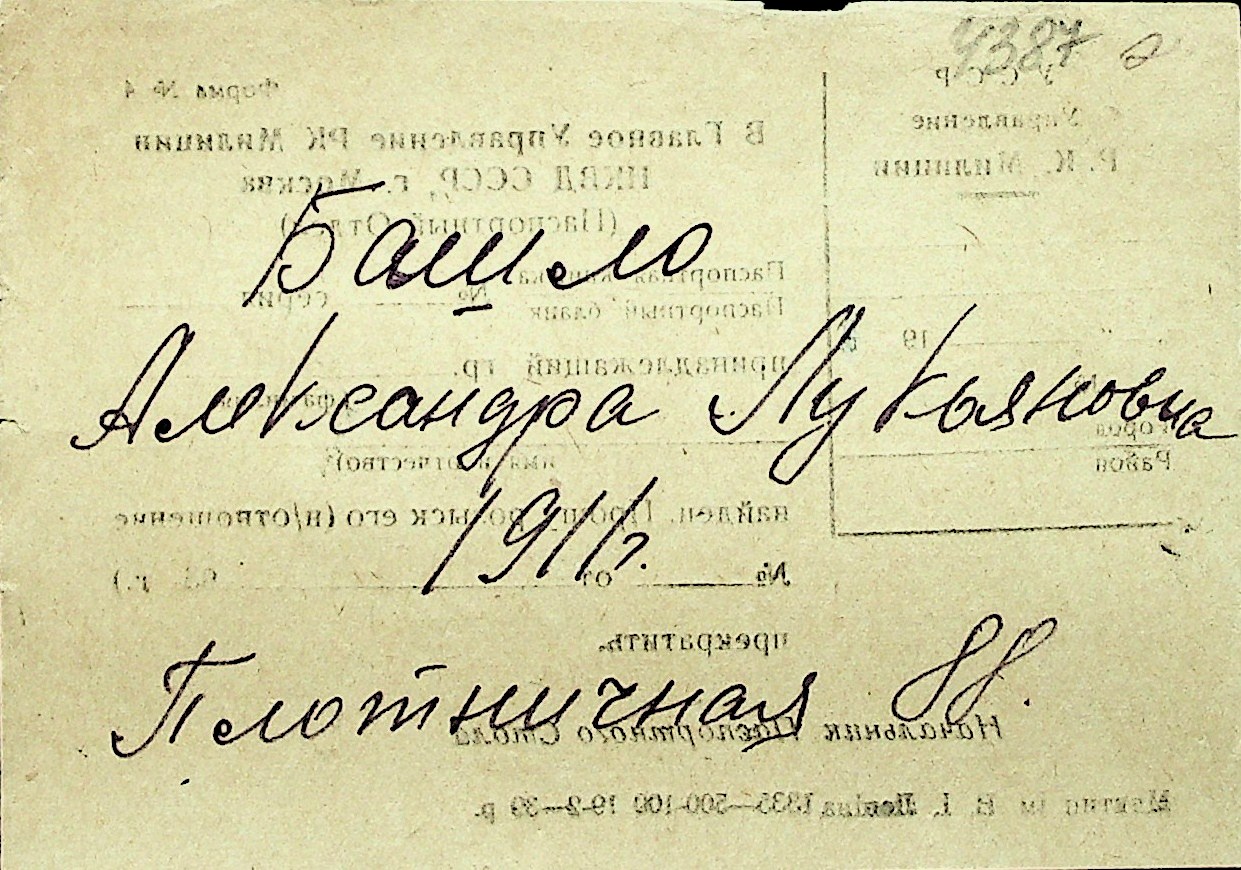 4387
Башло
Александра Лукьяновна
1911г.
Плотничная 88.
Форма № 4
В Главное Управление РК Милиции
НКВД СССР, г. Москва
(Паспортный Отдел)
Паспортная книжка
Паспортный бланк № серия
принадлежащий гр.
(фамилия,
имя и отчество)
найден. Прошу розыск его (н/отношение
№ от г.)
прекратить.
Начальник Паспортного Стола
1335—500-100 19-2-39 р.
СССР
Управление
Р. К. Милиции
19
Город
Район